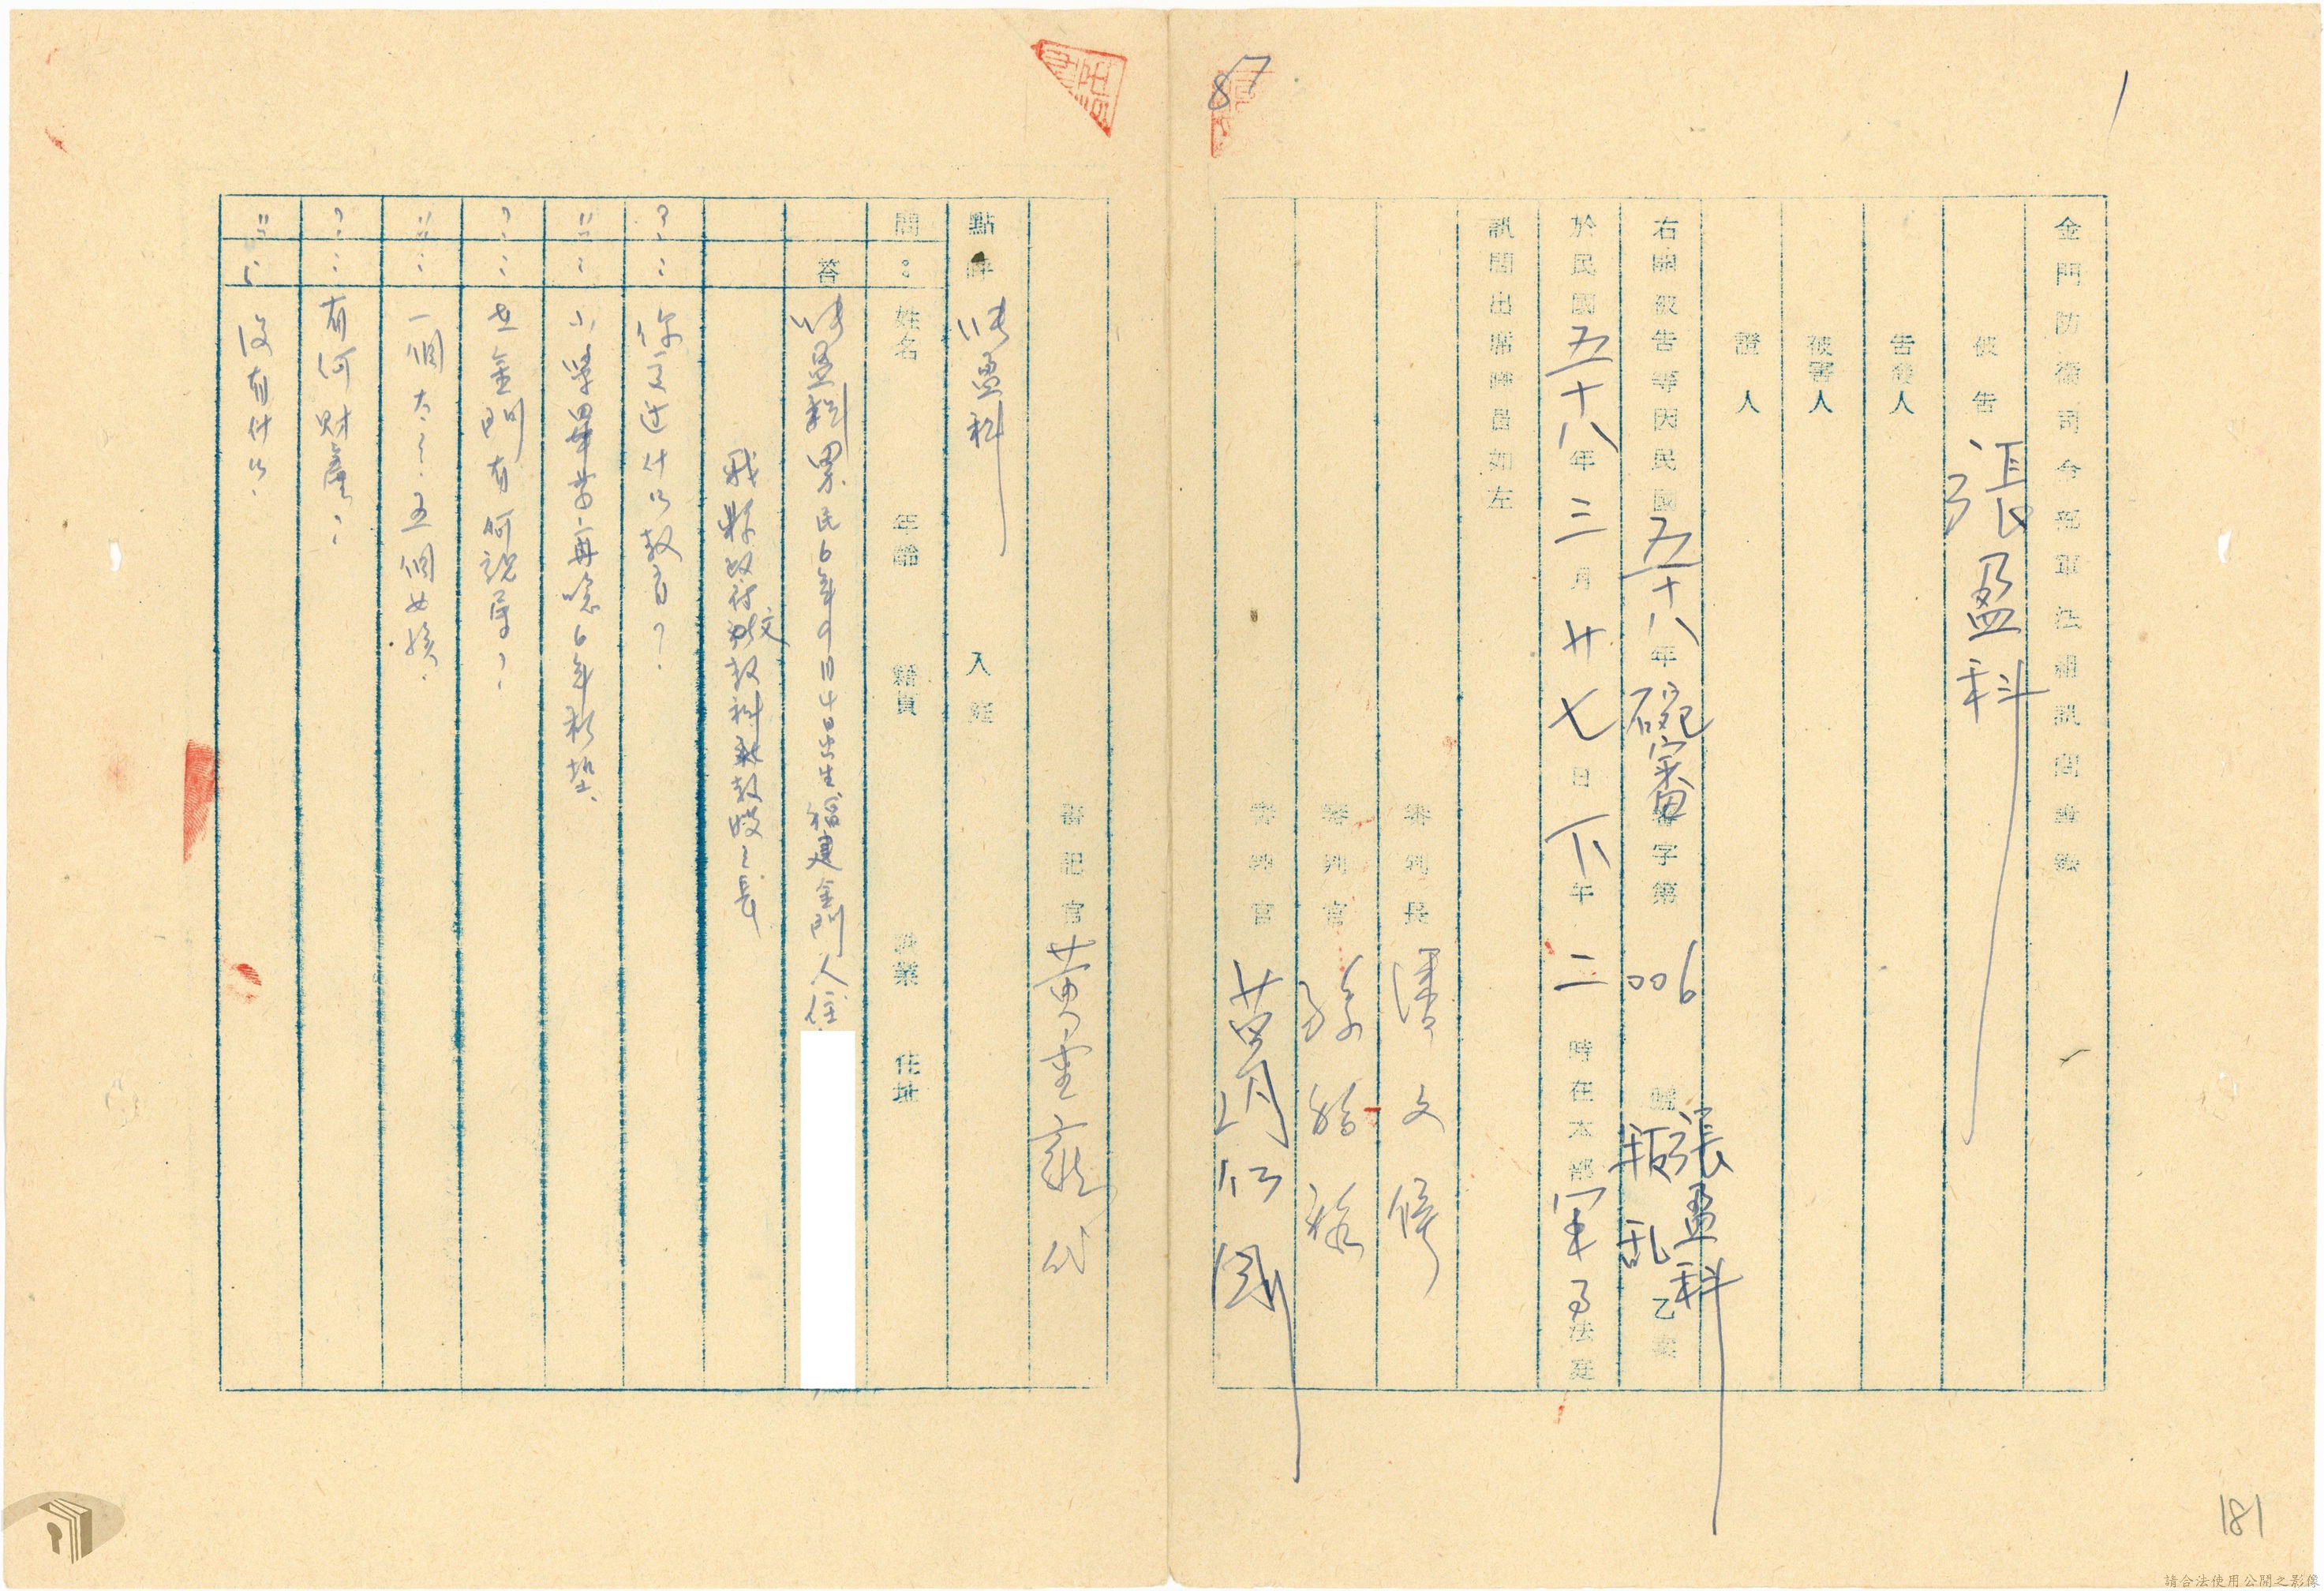 87
金門防衛司令部軍法組訊問筆錄
被告 張盈科
告發人
被害人
證人
右開被告等因民國五十八年碗審審字第006號張盈科叛亂乙案
於民國五十八年三月廿七日下午二時在本部軍事法庭
訊問出席職員如左
審判長
審判官
審判官
書記官
點呼 張盈科 入庭
問：姓名 年齡 籍貫 職業 住址
答 張盈科 男 民6年9月24日出生 福建金門人 住
你受過什麼教育？
小學畢業再唸6年私塾、
在金門有何親屬？
一個太太、五個女孩、
有何財產：
沒有什麼、
181
請合法使用公開之影像